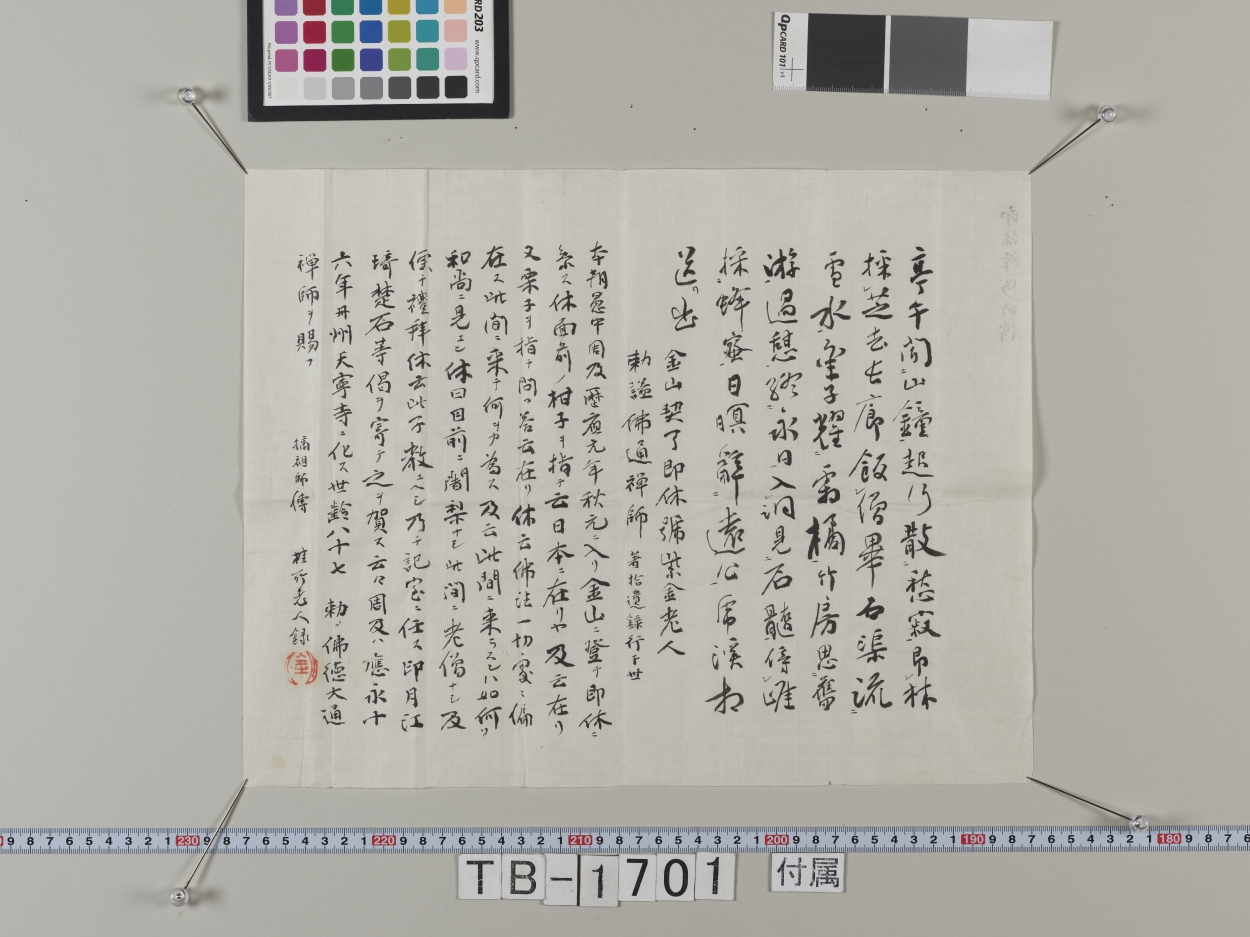 亭午聞山鐘起行散愁寂即林
採芝去長廊飯僧畢石渠流
雪水金子耀霜橘竹房思舊
游過憩終永日入洞見石髓傍崖
採蜂蜜日暝辭遠公虎溪相
送出
金山契了即休號紫金老人
勅謚佛通禪師 著拾遺録行于世
本朝愚中周及歴應元年秋元ニ入リ金山ニ登テ即休ニ
参ス休面前ノ柑子ヲ指テ云日本ニ在リヤ及云在リ
又栗子ヲ指テ問フ答云在リ休云佛法一切處ニ徧
在ス此間ニ来テ何ヲカ為ス及云此間ニ来ラスンハ如何ソ
和尚ニ見エン休曰目前ニ闍梨ナシ此間ニ老僧ナシ及
便チ禮拜休云此子教ユヘシ乃チ記室ニ任ス印月江
琦楚石等偈ヲ寄テ之ヲ賀ス云々周及ハ應永十
六年丹州天寧寺ニ化ス世齢八十七 勅シ佛徳大通
禅師ヲ賜フ
摘祖師傳 老人録
TB-1701 付属
QPCARD 101 v4
CARD 203
www.qpcard.com
9 8 7 6 5 4 3 2 1 230 9 8 7 6 5 4 3 2 1 220 9 8 7 6 5 4 3 2 1 210 9 8 7 6 5 4 3 2 1 200 9 8 7 6 5 4 3 2 1 190 9 8 7 6 5 4 3 2 1 180 9 8 7 6